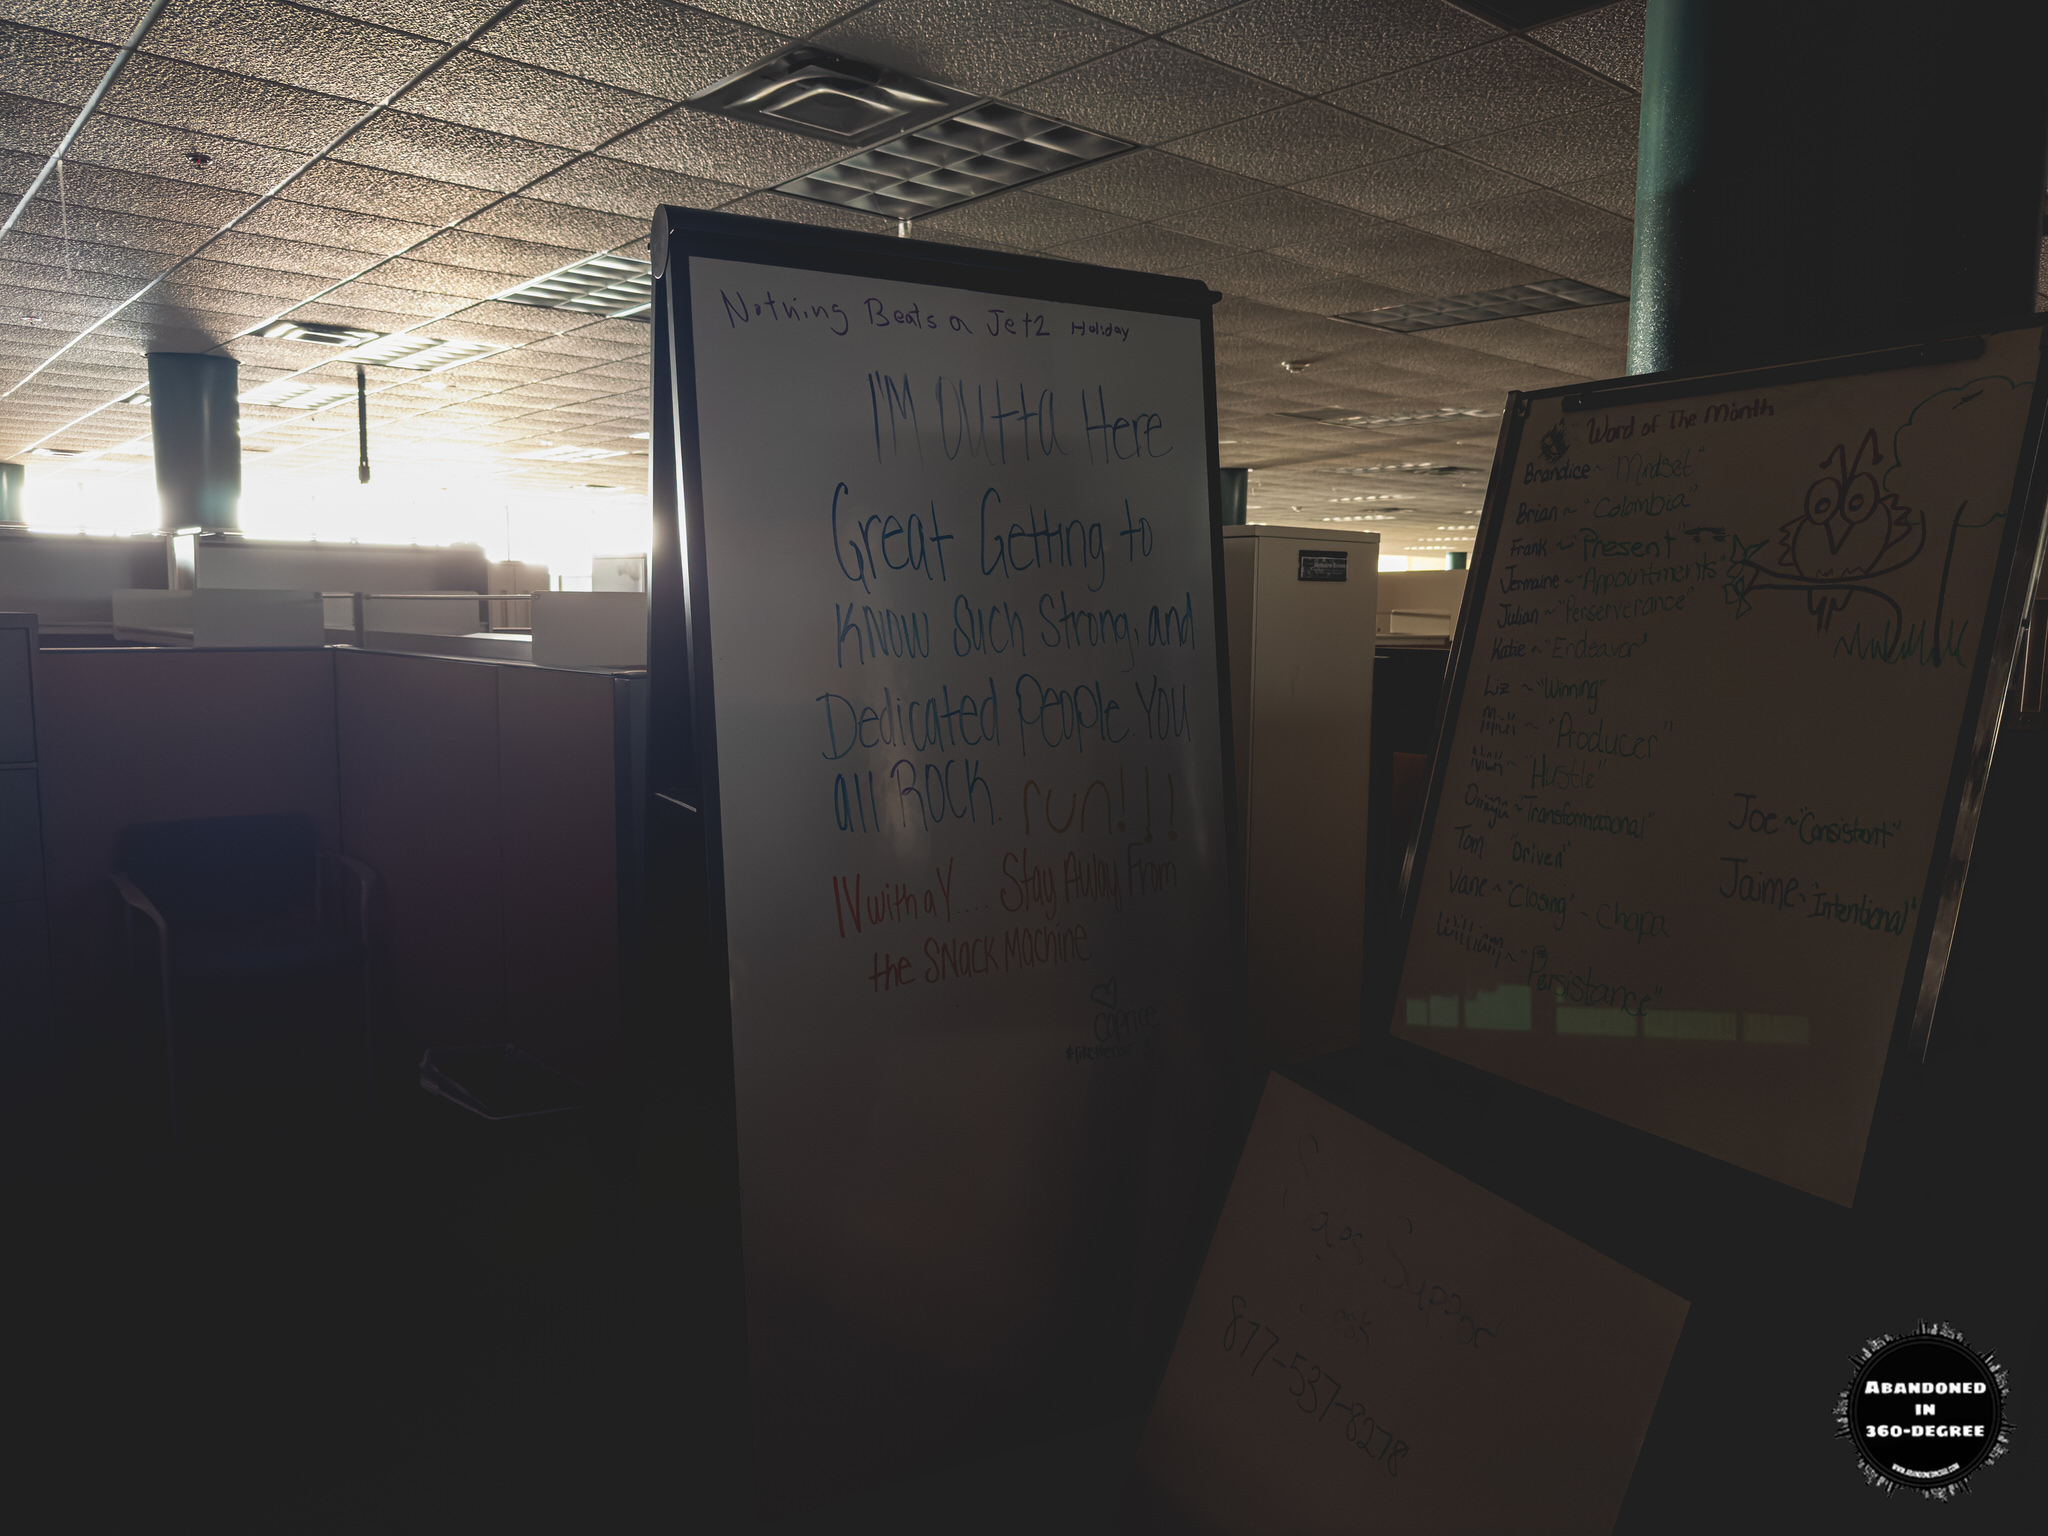 Nothing Beats a Jet2 Holiday
I'M Outta Here
Great Getting to
KNOW Such Strong, and
Dedicated People. You
all ROCK. run!!!
IV with a Y.... Stay Away From
the SNACK MACHINE
Caprice
Word of The Month
Brandice ~ "Mindset"
Brian ~ "Colombia"
Frank ~ "Present"
Jermaine ~ "Appointments"
Julian ~ "Perserverance"
Katie ~ "Endeavor"
Liz ~ "Winning"
~ "Producer"
~ "Hustle"
~ "Transformational"
Tom "Driven"
Vane ~ "Closing" ~ Chapa
William ~ "Persistance"
Joe ~ "Consistent"
Jaime ~ "Intentional"
Support
877-537-8278
ABANDONED
IN
360-DEGREE